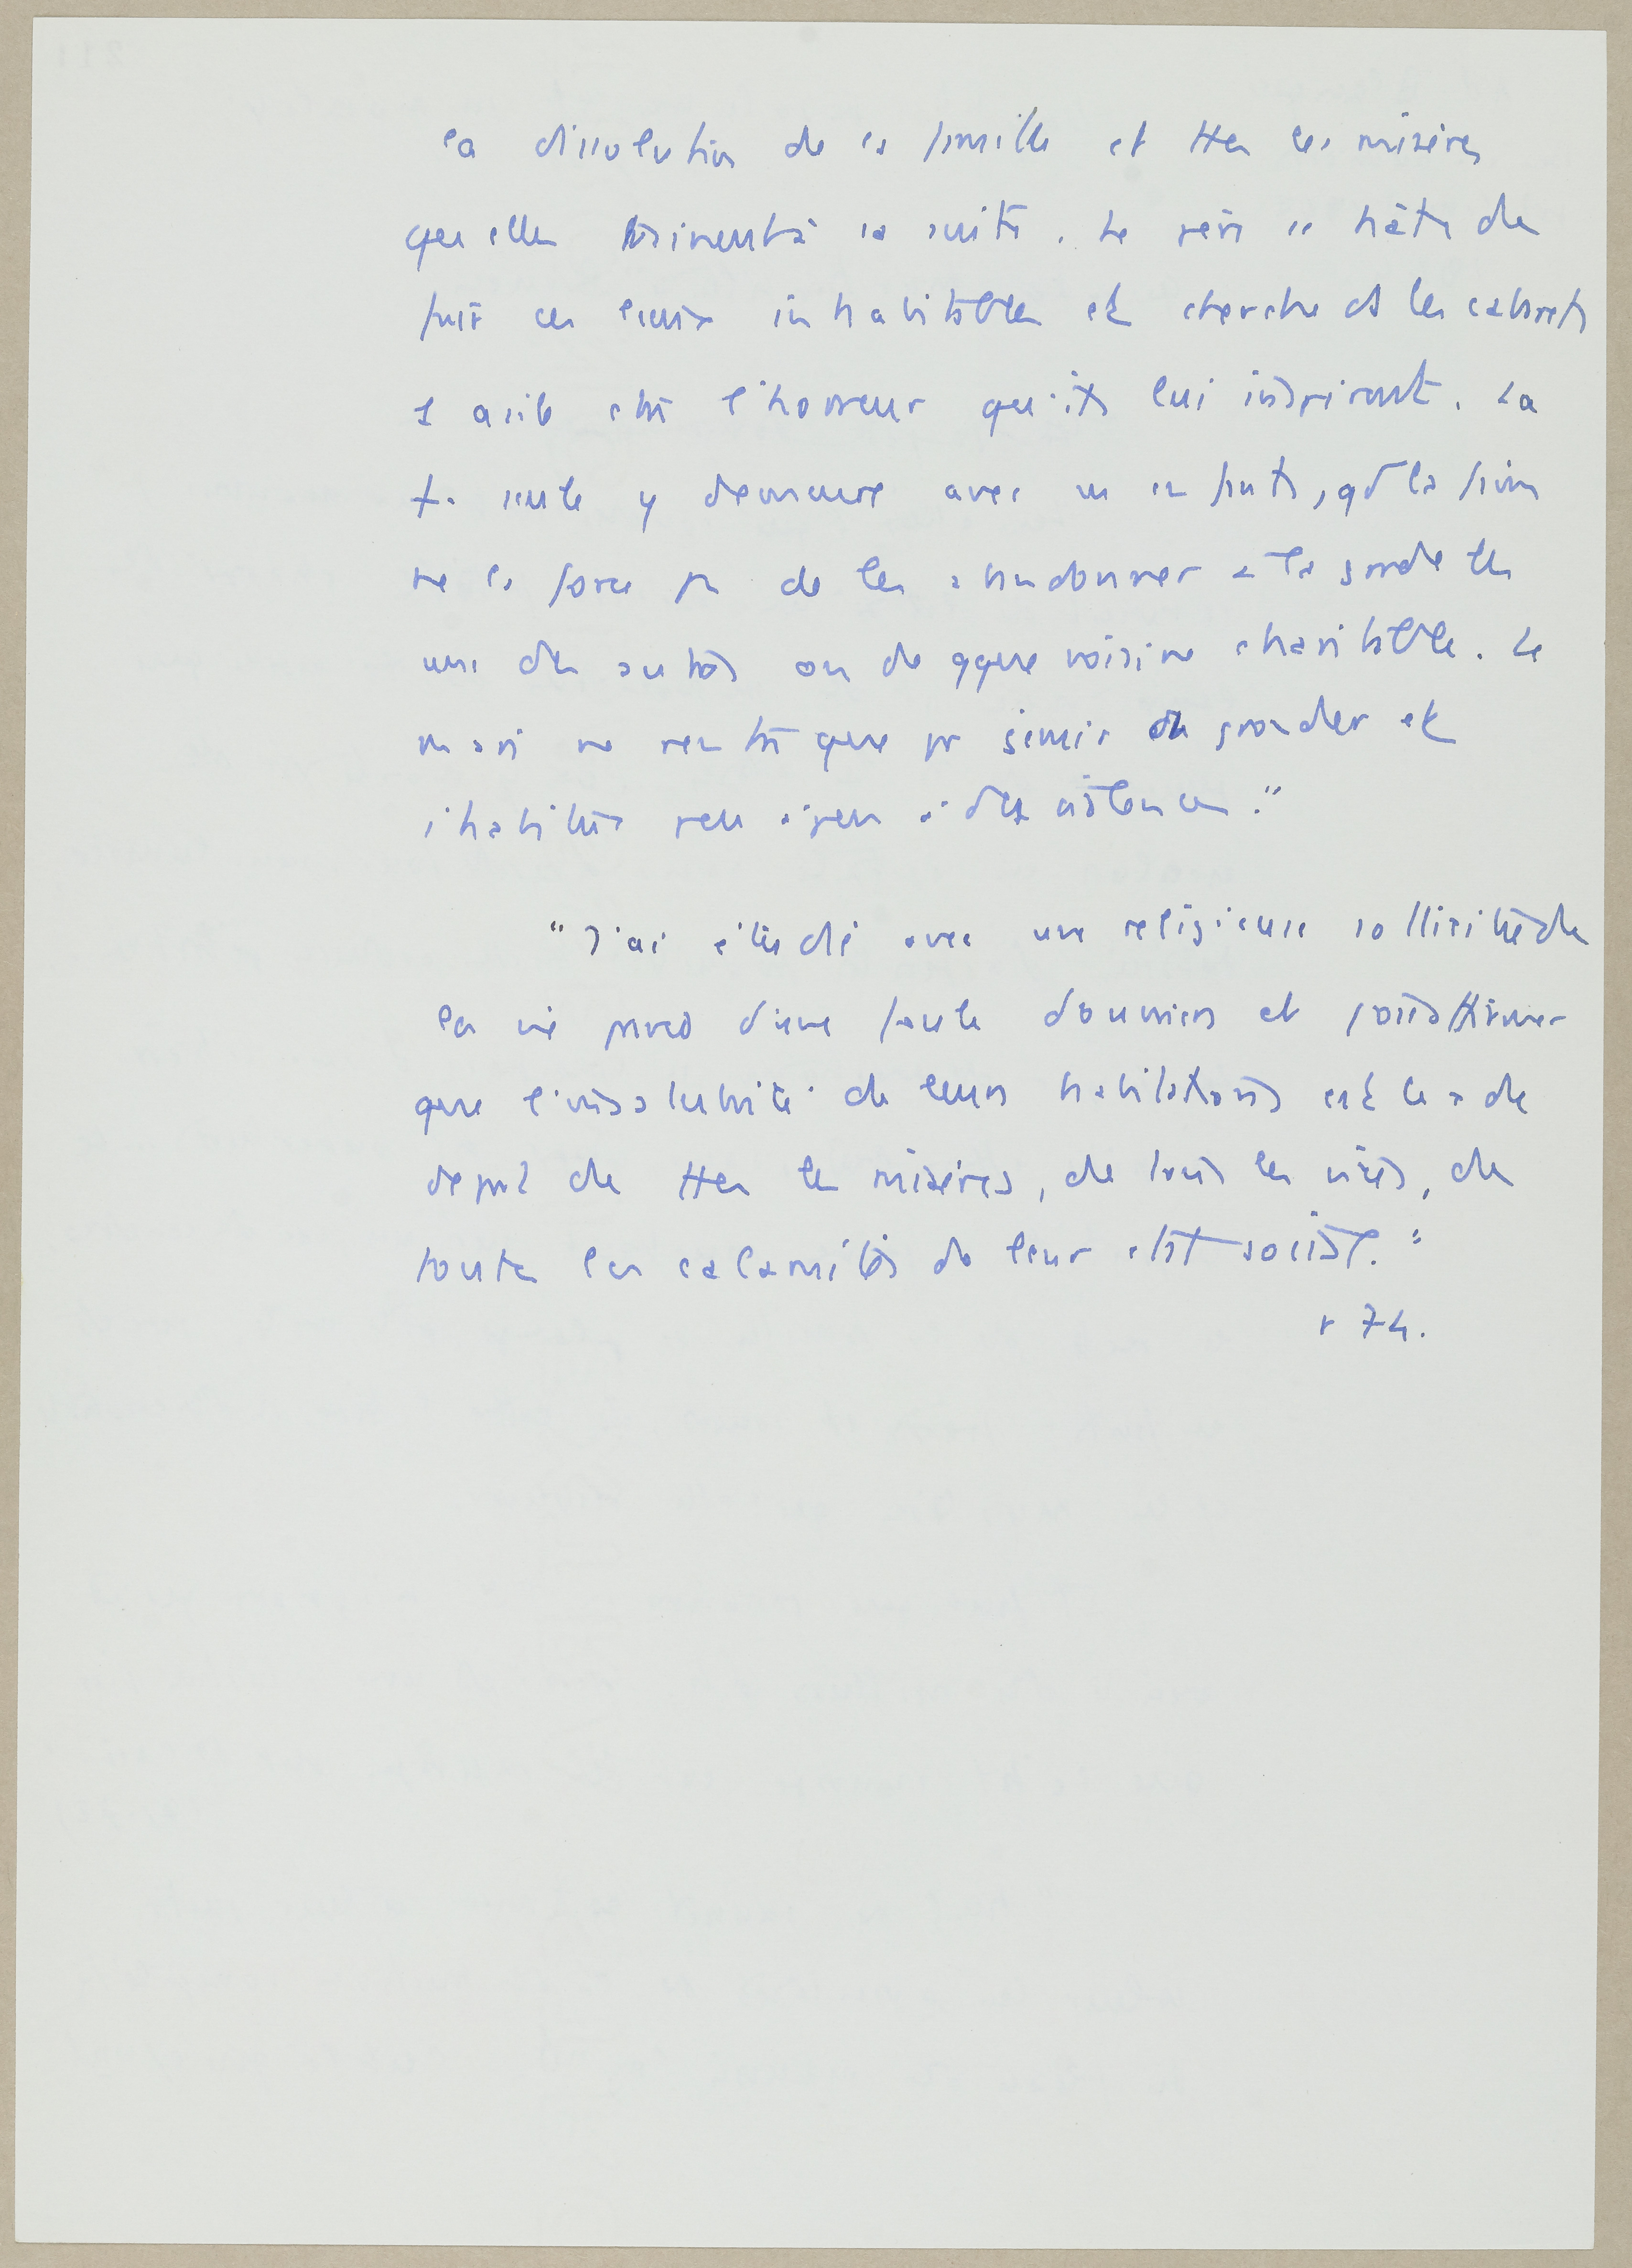 la dissolution de la famille et ttes les misères
qu'elles traînent à sa suite. Le père se hâte de
fuir ces lieux inhabitables et cherche ds les cabarets
1 asile ctre l'horreur qu'ils lui inspirent. La
f. seule y demeure avec ses enfants, qd la faim
ne la force pas de les abandonner à la garde les
uns des autres ou de qque voisine charitable. Le
mari ne rentre que pr gémir ou gronder et
s'habituer peu à peu à des violences."
"J'ai étudié avec une religieuse sollicitude
la vie privée d'une foule d'ouvriers et j'ose affirmer
que l'insalubrité de leurs habitations est le pt de
départ de ttes les misères, de tous les vices, de
toutes les calamités de leur état social."
p 74.